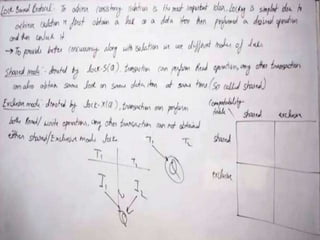 Lock Based Protocol: To achieve consistency isolation is the most important idea, locking is simplest idea to
achieve isolation is first obtain a lock on a data item then performed a desired operation
and then unlock it
→ To provide better concurrency along with isolation we use different modes of lock
Shared mode - denoted by lock-S(Q), transaction can perform Read operation, any other transaction
can also obtain same lock on same data item at same time (so called shared)
Exclusive mode - denoted by lock-X(Q), transaction can perform
both Read/write operation, any other transaction can not obtained
either shared/Exclusive mode lock
Compatibility table
shared exclusive
shared
exclusive
T1 T2
T1
I1 I2
Q
Q